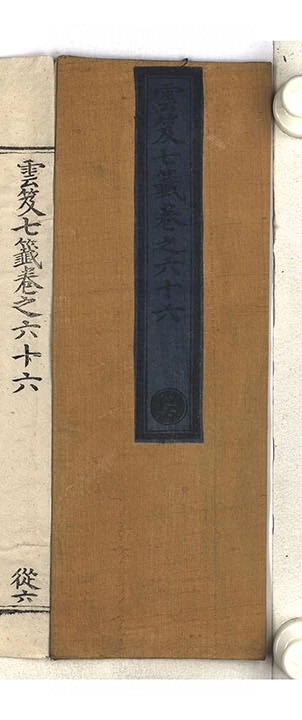 雲笈七籤卷之六十六
雲笈七籤卷之六十六
從六